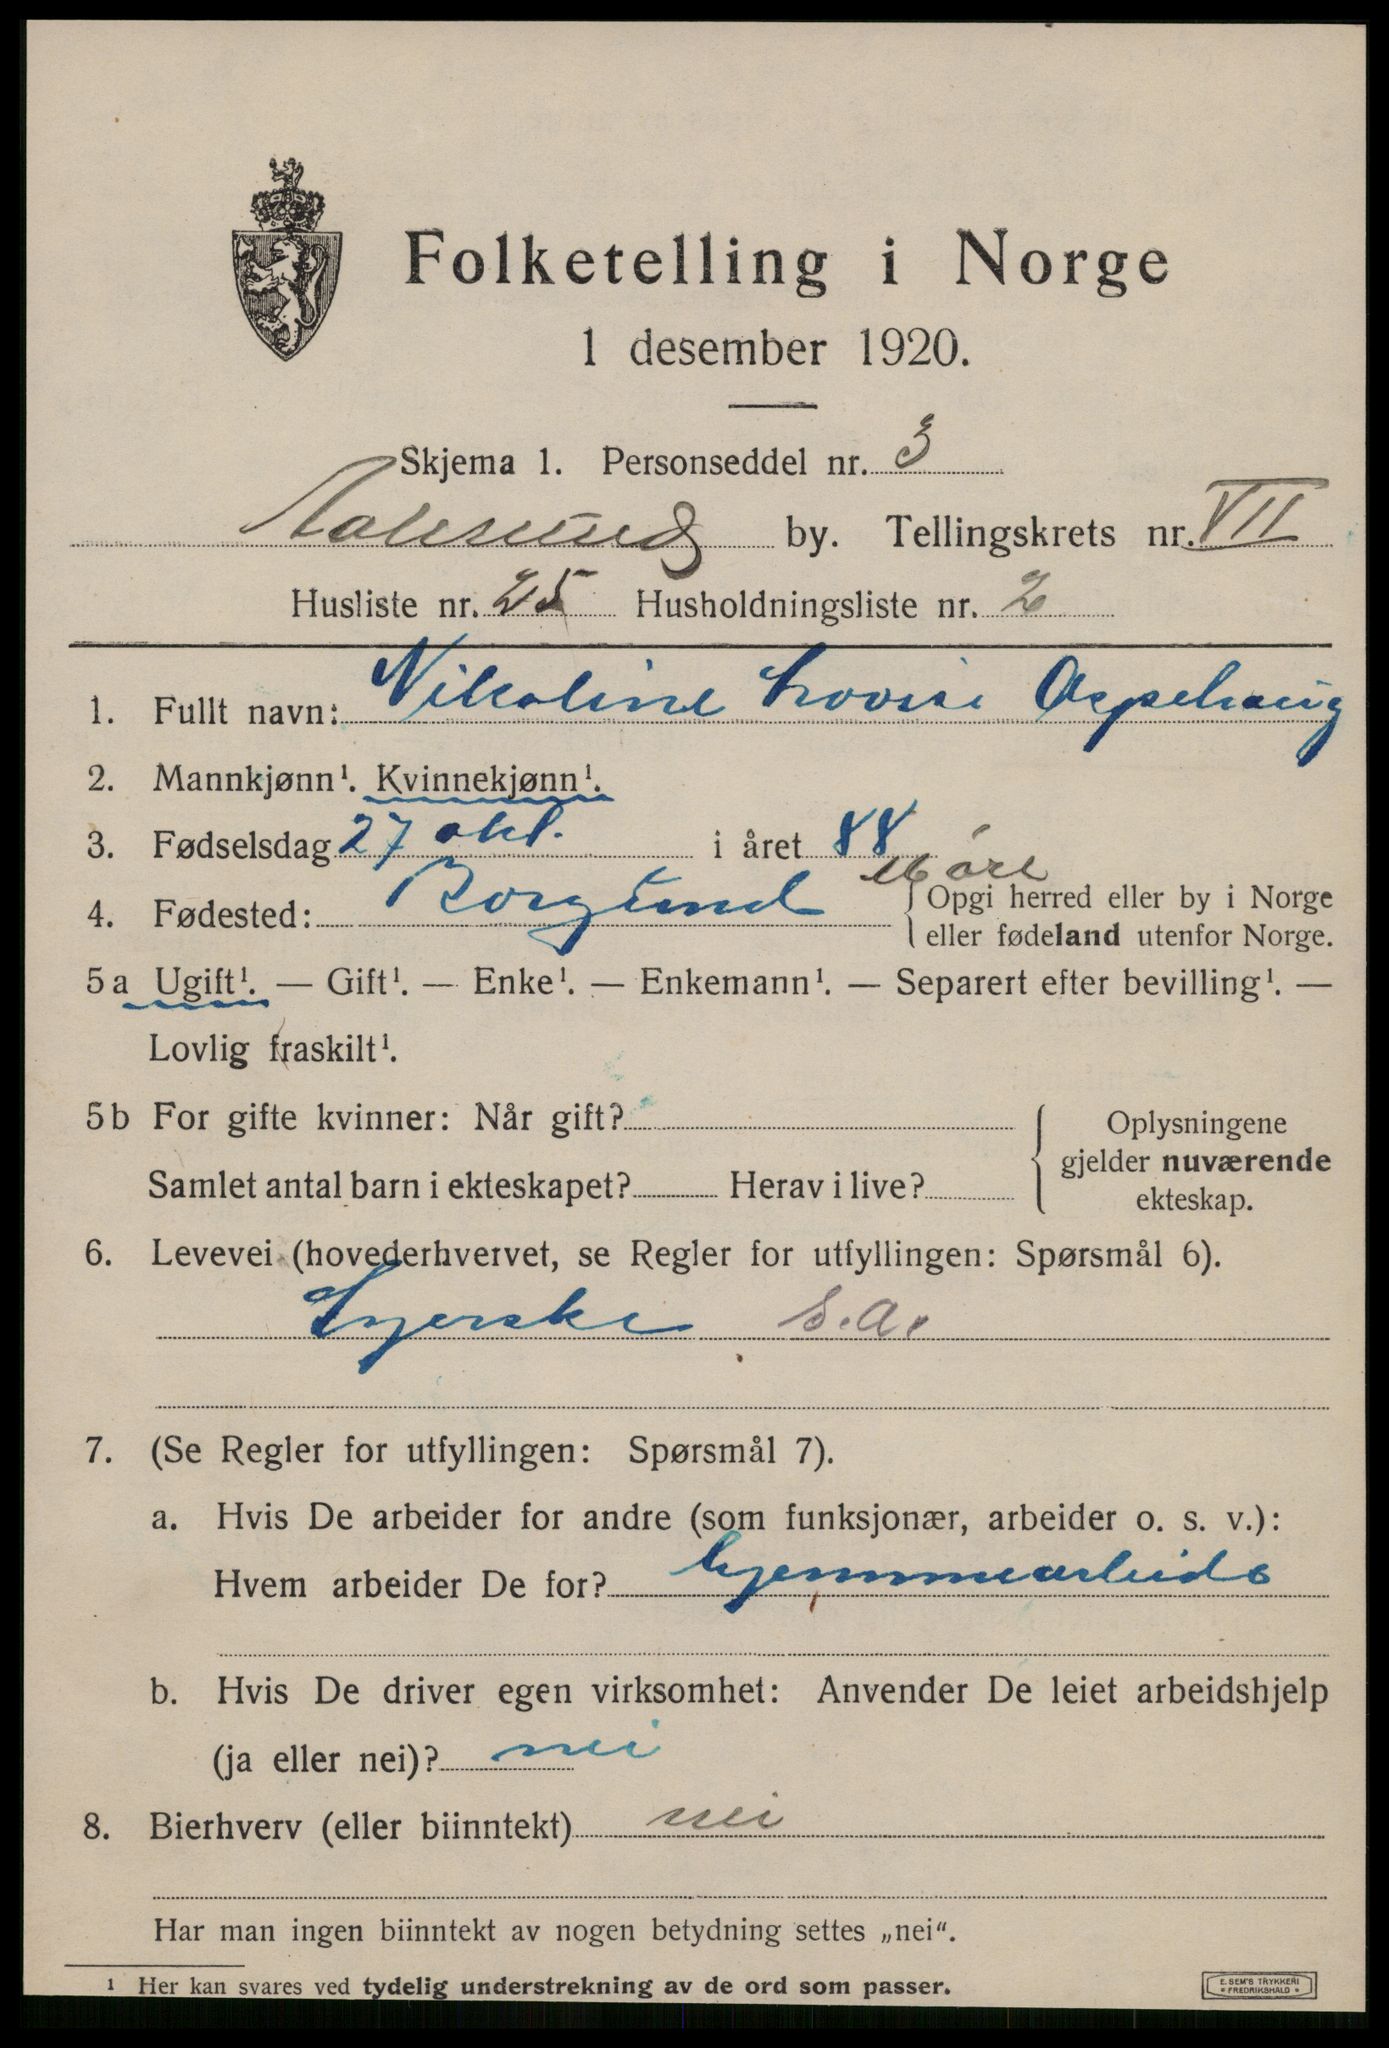 Folketelling i Norge
1 desember 1920.
Skjema 1. Personseddel nr. 3
Aalesund by. Tellingskrets nr. VII
Husliste nr. 25 Husholdningsliste nr. 2
1. Fullt navn: Nikoline Lovise Aspehaug
2. Mannkjønn¹. Kvinnekjønn¹.
3. Fødselsdag 27 okt. i året 88
Møre
4. Fødested: Borgund { Opgi herred eller by i Norge
eller fødeland utenfor Norge.
5a Ugift¹. — Gift¹. — Enke¹. — Enkemann¹. — Separert efter bevilling¹. —
Lovlig fraskilt¹.
5b For gifte kvinner: Når gift?
Samlet antal barn i ekteskapet? Herav i live?
{ Oplysningene
gjelder nuværende
ekteskap.
6. Levevei (hovederhvervet, se Regler for utfyllingen: Spørsmål 6).
Syerske s.a.
7. (Se Regler for utfyllingen: Spørsmål 7).
a. Hvis De arbeider for andre (som funksjonær, arbeider o. s. v.):
Hvem arbeider De for? hjemmearbeide
b. Hvis De driver egen virksomhet: Anvender De leiet arbeidshjelp
(ja eller nei)? nei
8. Bierhverv (eller biinntekt) nei
Har man ingen biinntekt av nogen betydning settes „nei“.
¹ Her kan svares ved tydelig understrekning av de ord som passer.
E. SEM'S TRYKKERI
* FREDRIKSHALD *